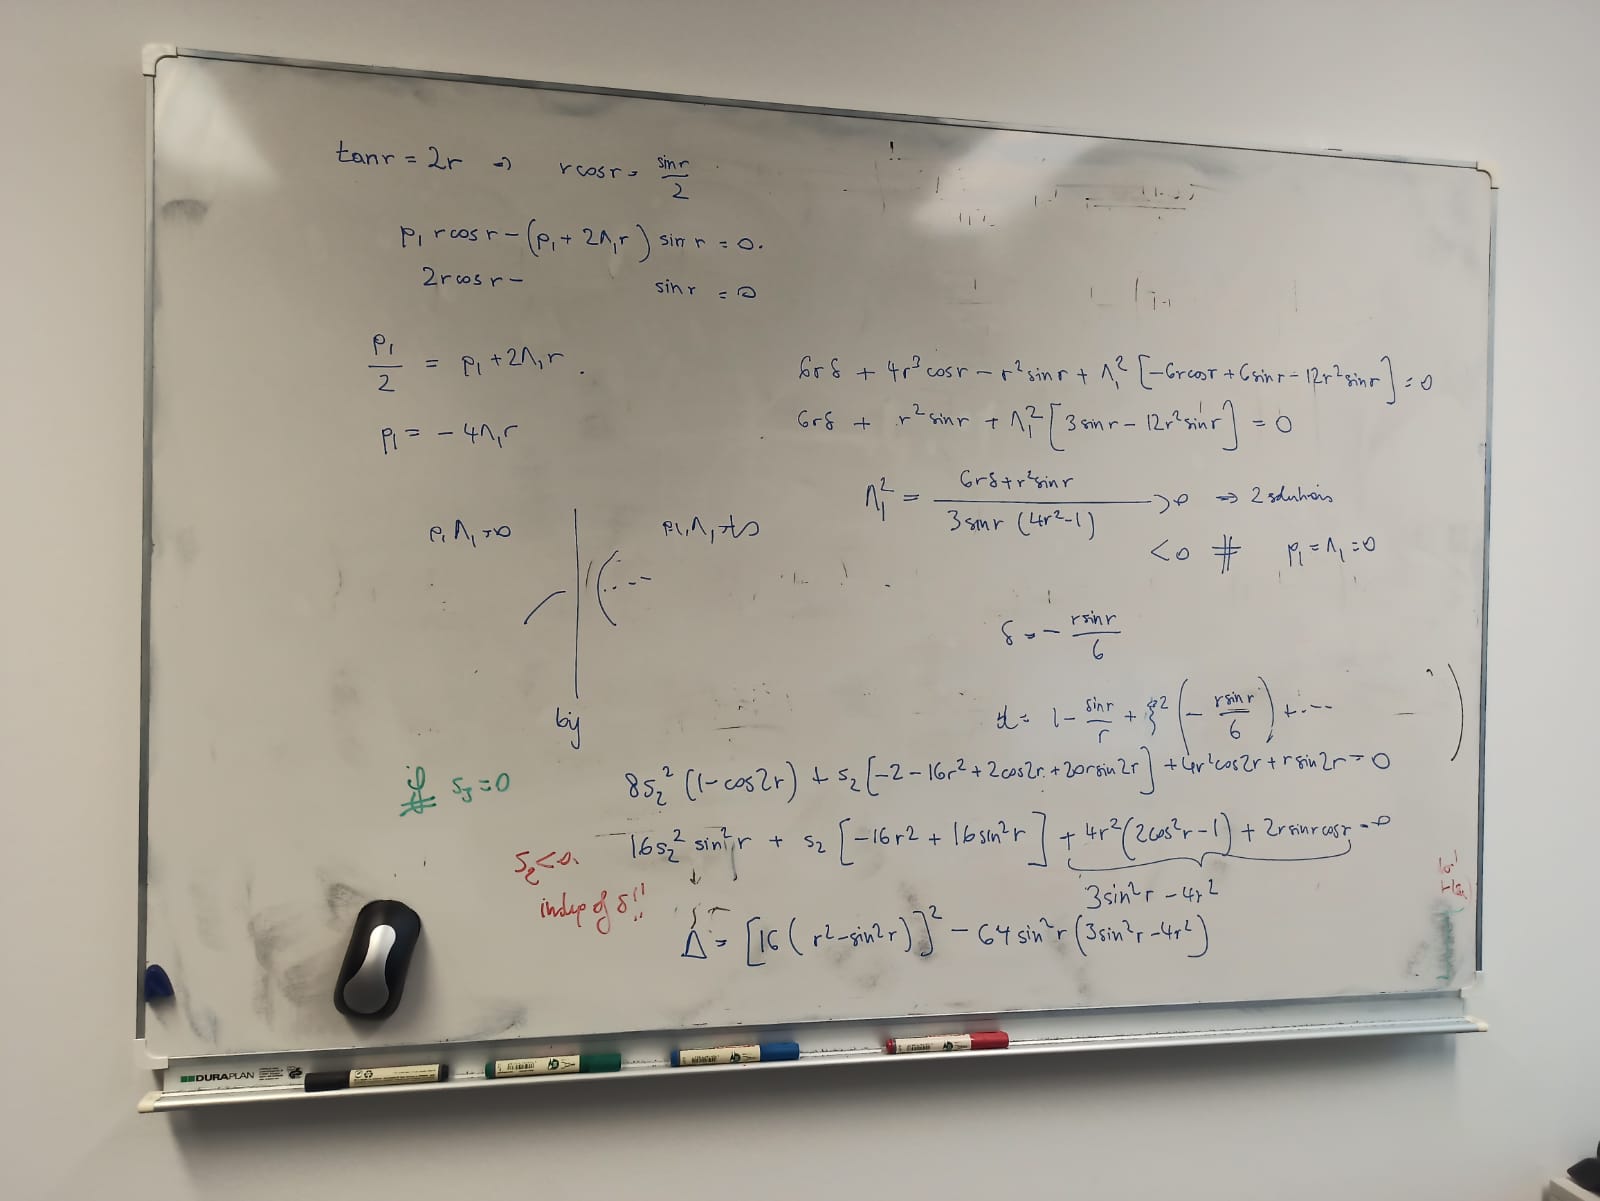 tanr = 2r => rcosr = sinr/2
p₁ rcosr - (p₁ + 2Λ₁r) sinr = 0.
2rcosr - sinr = 0
p₁/2 = p₁ + 2Λ₁r.
p₁ = -4Λ₁r
6rδ + 4r³cosr - r²sinr + Λ₁² [-6rcosr + 6sinr - 12r²sinr] = 0
6rδ + r²sinr + Λ₁² [3sinr - 12r²sinr] = 0
Λ₁² = (6rδ + r²sinr)/(3sinr (4r²-1)) >0 => 2 solutions
<0 # p₁ = Λ₁ = 0
p₁Λ₁=0
p₁,Λ₁≠0
δ = - rsinr/6
= 1 - sinr/r + ξ² (- rsinr/6) + ...
if s₃ = 0
8s₂² (1-cos2r) + s₂ [-2 - 16r² + 2cos2r + 20rsin2r] + 4r²cos2r + rsin2r = 0
16s₂² sin²r + s₂ [-16r² + 16sin²r] + 4r²(2cos²r-1) + 2rsinrcosr = 0
3sin²r - 4r²
s₂<0.
indep of δ!!
Δ = [16(r²-sin²r)]² - 64sin²r (3sin²r-4r²)
DURAPLAN